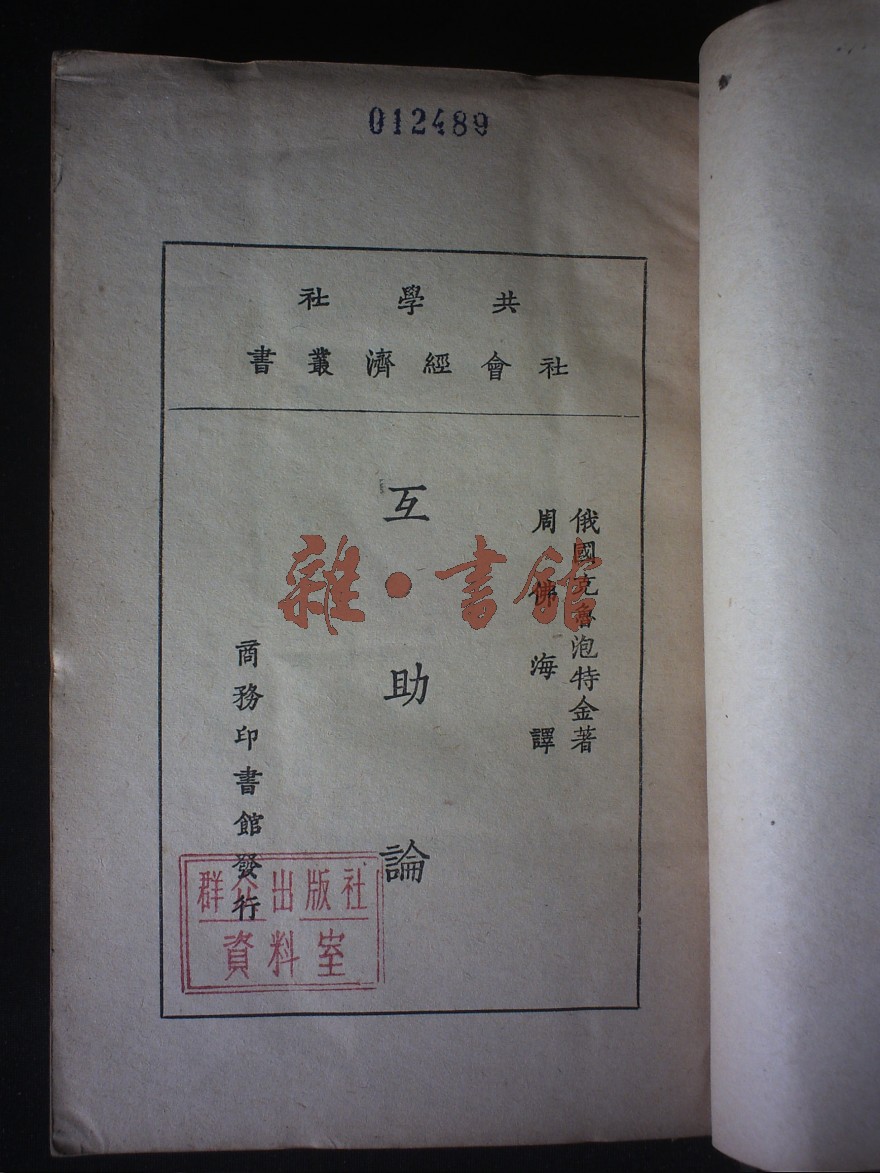 012489
共學社
社會經濟叢書
俄國克魯泡特金著
周佛海譯
互助論
商務印書館發行
群众出版社
資料室
雜·書館